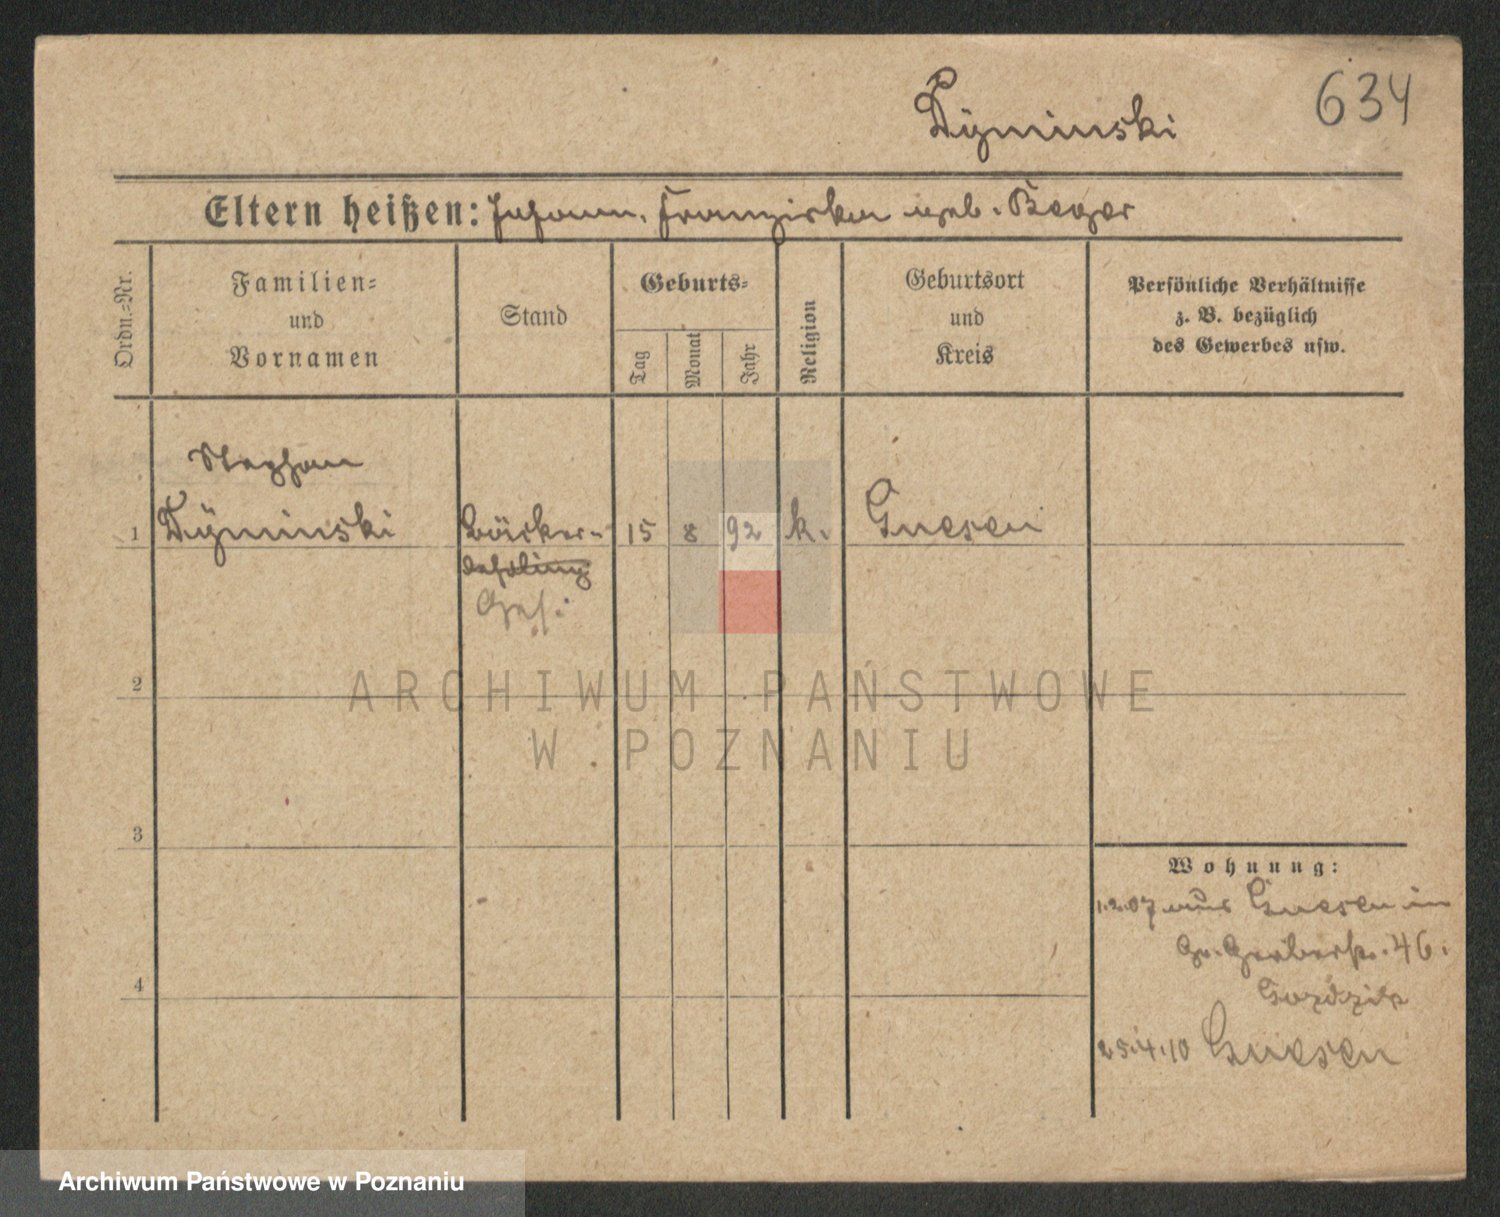 Dyminski
634
Eltern heißen: Johann, Franziska geb. Beger
Ordn.-Nr.
Familien-
und
Vornamen
Stand
Geburts-
Tag
Monat
Jahr
Religion
Geburtsort
und
Kreis
Persönliche Verhältnisse
z. B. bezüglich
des Gewerbes usw.
Stephan
1 Dyminski Bäcker- 15 8 92 k. Gnesen
Lehrling
Ges.
2
ARCHIWUM PAŃSTWOWE
W POZNANIU
3
Wohnung:
1.2.07 aus Gnesen in
Gr. Gerberstr. 46.
4
25.4.10 Gnesen
Archiwum Państwowe w Poznaniu